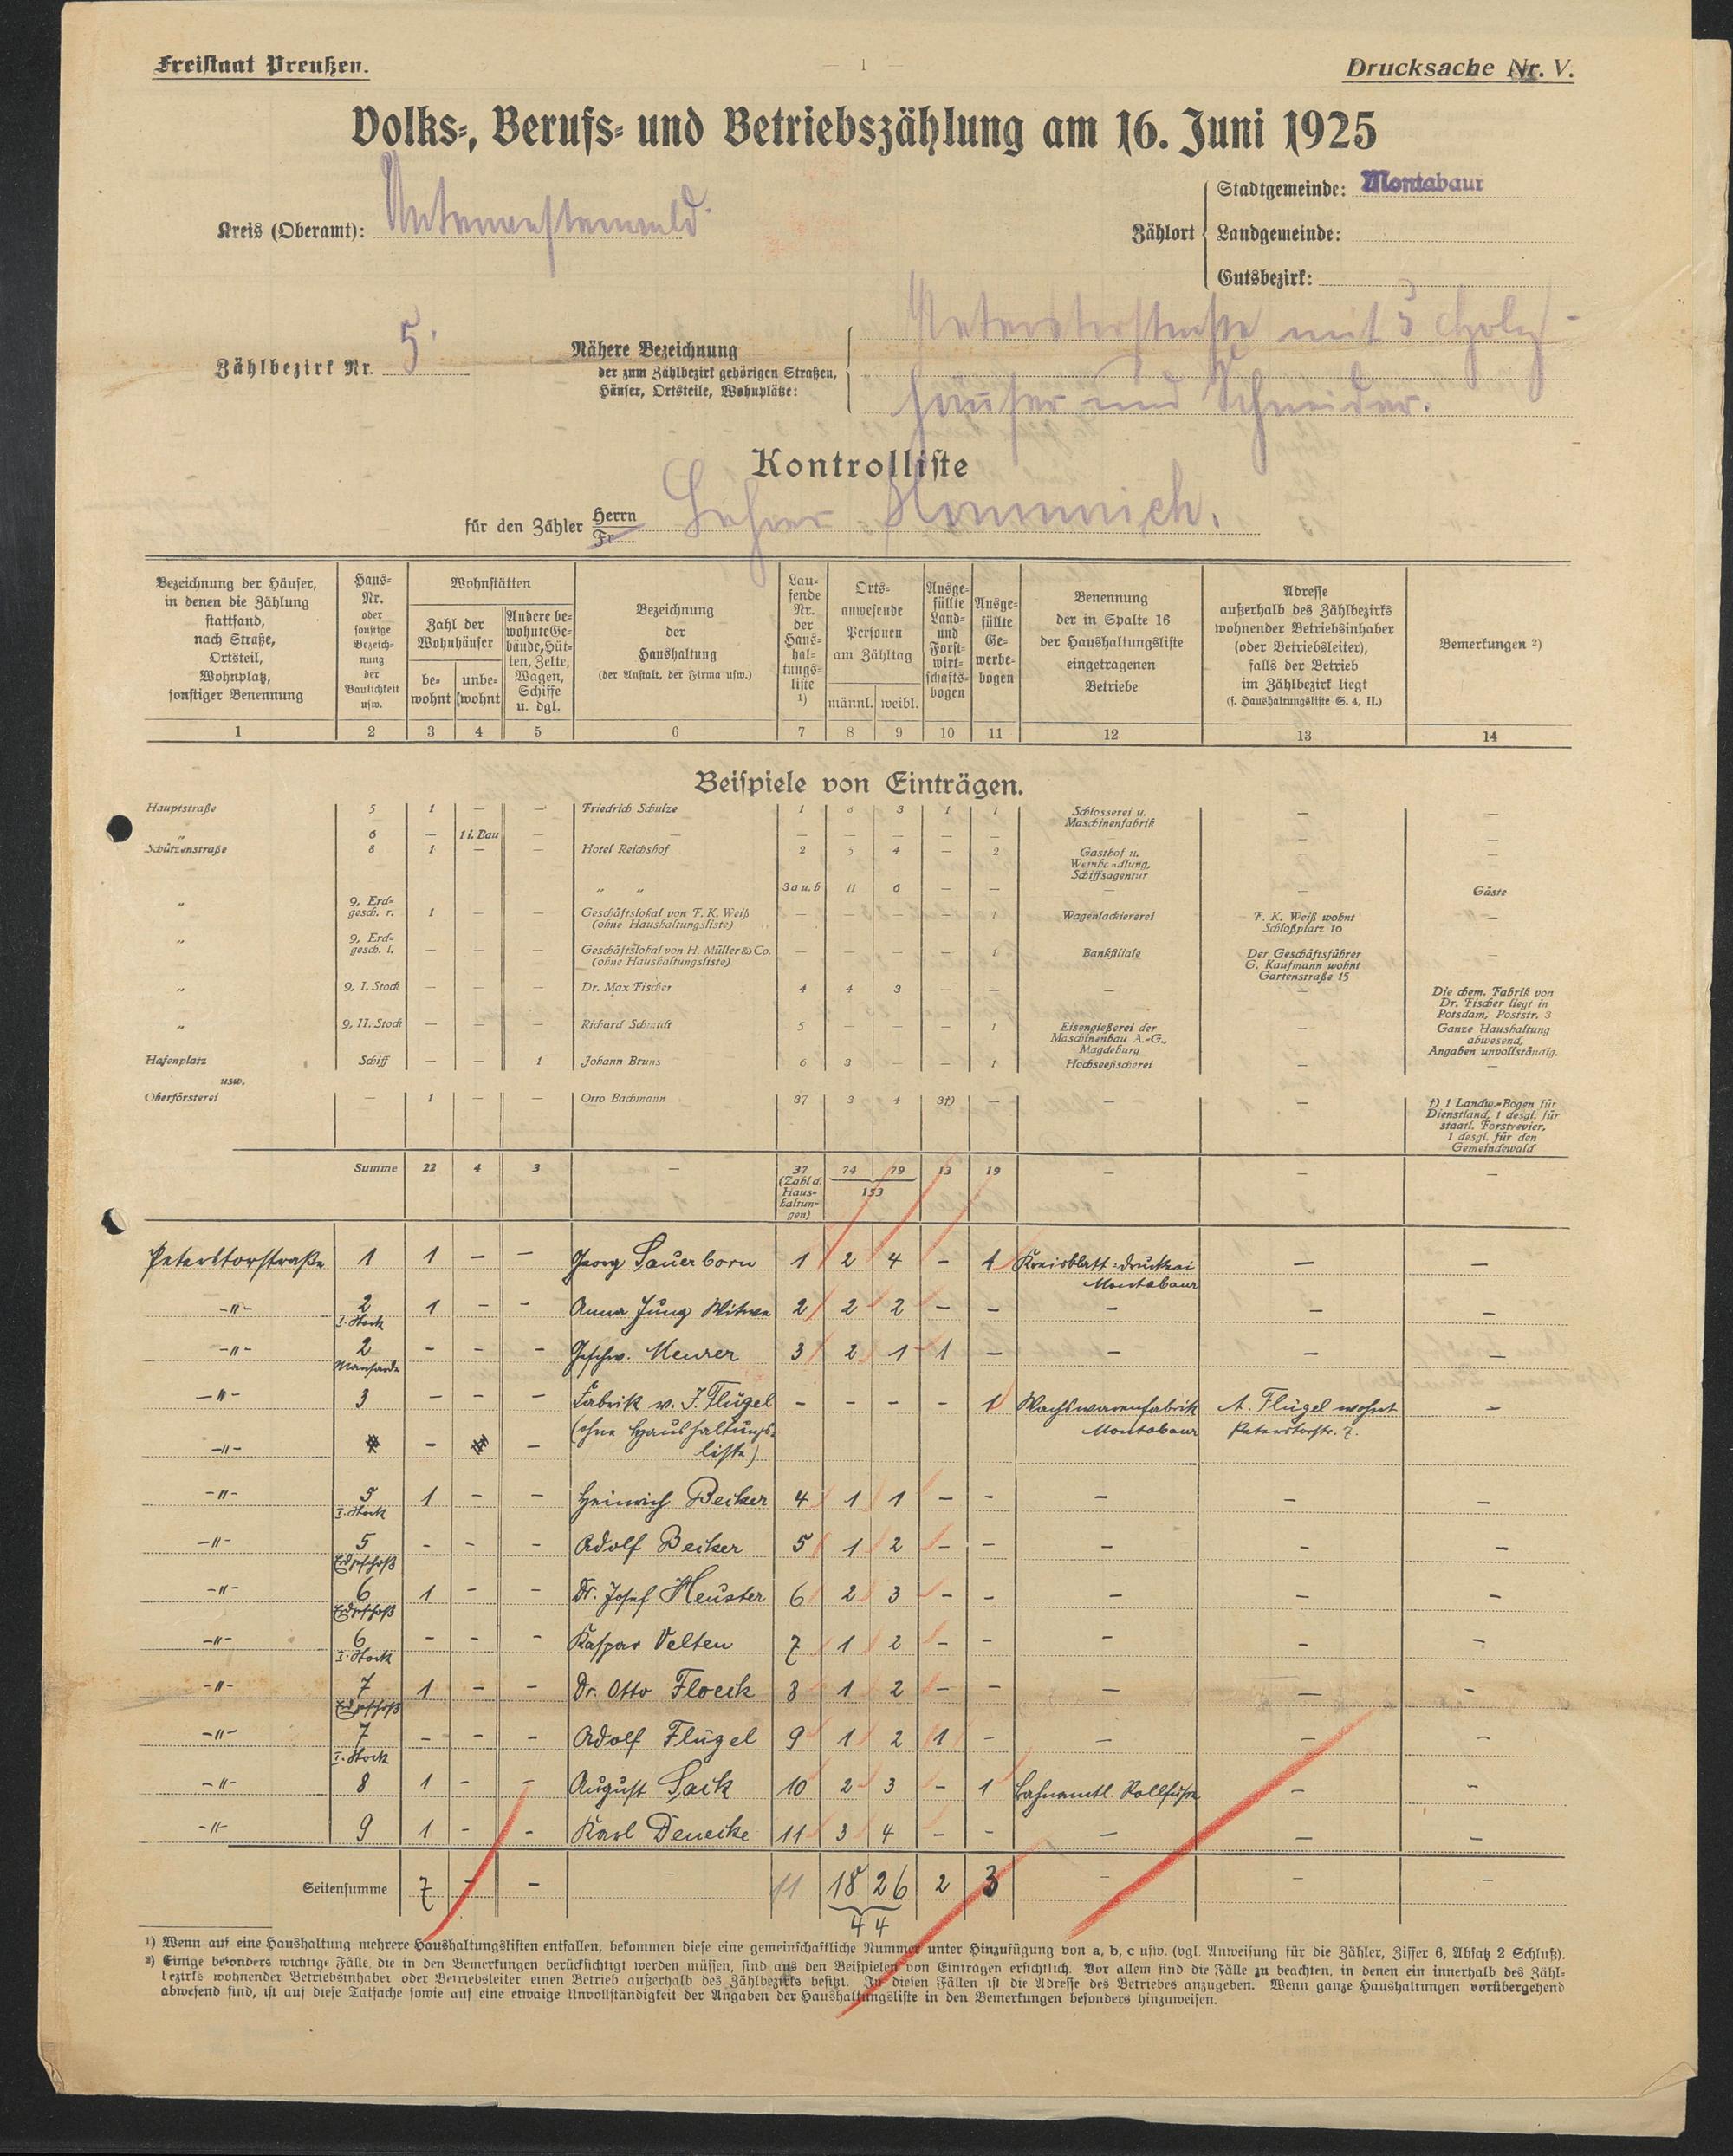 Freistaat Preußen.
— 1 —
Drucksache Nr. V.
Volks-, Berufs- und Betriebszählung am 16. Juni 1925
Kreis (Oberamt): Unterwesterwald.
Zählort
Stadtgemeinde: Montabaur
Landgemeinde:
Gutsbezirk:
Zählbezirk Nr. 5.
Nähere Bezeichnung
der zum Zählbezirk gehörigen Straßen,
Häuser, Ortsteile, Wohnplätze:
Peterstorstraße mit 3 Holz-
häuser und Schneider.
Kontrolliste
für den Zähler Herrn Lehrer
Fr.
Bezeichnung der Häuser, in denen die Zählung stattfand, nach Straße, Ortsteil, Wohnplatz, sonstiger Benennung
Haus-Nr. oder sonstige Bezeichnung der Baulichkeit usw.
Wohnstätten
Zahl der Wohnhäuser
bewohnt
unbewohnt
Andere bewohnte Gebäude, Hütten, Zelte, Wagen, Schiffe u. dgl.
Bezeichnung der Haushaltung
(der Anstalt, der Firma usw.)
Laufende Nr. der Haushaltungsliste 1)
Ortsanwesende Personen am Zähltag
männl. weibl.
Ausgefüllte Land- und Forstwirtschaftsbogen
Ausgefüllte Gewerbebogen
Benennung der in Spalte 16 der Haushaltungsliste eingetragenen Betriebe
Adresse außerhalb des Zählbezirks wohnender Betriebsinhaber (oder Betriebsleiter), falls der Betrieb im Zählbezirk liegt
(s. Haushaltungsliste S. 4, II.)
Bemerkungen 2)
1 2 3 4 5 6 7 8 9 10 11 12 13 14
Beispiele von Einträgen.
Hauptstraße 5 1 — — Friedrich Schulze 1 6 3 1 1 Schlosserei u. Maschinenfabrik — —
„ 6 — 1 i. Bau — — — — — — — — — —
Schützenstraße 8 1 — — Hotel Reichshof 2 5 4 — 2 Gasthof u. Weinhandlung, Schiffsagentur — —
„ „ 3a u. b 11 6 — — — — Gäste
„ 9, Erdgesch. r. 1 — — Geschäftslokal von F. K. Weiß (ohne Haushaltungsliste) — — — — 1 Wagenlackiererei F. K. Weiß wohnt Schloßplatz 10 —
„ 9, Erdgesch. l. — — — Geschäftslokal von H. Müller & Co. (ohne Haushaltungsliste) — — — — 1 Bankfiliale Der Geschäftsführer G. Kaufmann wohnt Gartenstraße 15 —
„ 9, I. Stock — — — Dr. Max Fischer 4 4 3 — — — — Die chem. Fabrik von Dr. Fischer liegt in Potsdam, Poststr. 3
„ 9, II. Stock — — — Richard Schmidt 5 — — — 1 Eisengießerei der Maschinenbau A.-G., Magdeburg — Ganze Haushaltung abwesend, Angaben unvollständig.
Hafenplatz Schiff — — 1 Johann Bruns 6 3 — — 1 Hochseefischerei — —
usw.
Oberförsterei — 1 — — Otto Bachmann 37 3 4 3†) — — — †) 1 Landw.-Bogen für Dienstland, 1 desgl. für staatl. Forstrevier, 1 desgl. für den Gemeindewald
Summe 22 4 3 — 37 (Zahl d. Haushaltungen) 74 79 13 19 — — —
153
Peterstorstraße 1 1 - - Georg Sauerborn 1 2 4 - 1 Kreisblatt-Druckerei Montabaur — —
-"- 2 I. Stock 1 - - Anna Jung Witwe 2 2 2 - - - - -
-"- 2 Mansarde - - - Geschw. Meurer 3 2 1 1 - - - -
-"- 3 - - - Fabrik v. J. Flügel - - - - 1 Wachswarenfabrik Montabaur A. Flügel wohnt Peterstorstr. 7. -
-"- - - (ohne Haushaltungsliste)
-"- 5 I. Stock 1 - - Heinrich Becker 4 1 1 - - - - -
-"- 5 Erdgeschoß - - - Adolf Becker 5 1 2 - - - - -
-"- 6 Erdgeschoß 1 - - Dr. Josef Heuster 6 2 3 - - - - -
-"- 6 I. Stock - - - Kaspar Velten 7 1 2 - - - - -
-"- 7 Erdgeschoß 1 - - Dr. Otto Floeck 8 1 2 - - - - -
-"- 7 I. Stock - - - Adolf Flügel 9 1 2 1 - - - -
-"- 8 1 - - August Sack 10 2 3 - 1 bahnamtl. Rollfuhre - -
-"- 9 1 - - Karl Denecke 11 3 4 - - - - -
Seitensumme 7 - - - 11 18 26 2 3 - - -
44
1) Wenn auf eine Haushaltung mehrere Haushaltungslisten entfallen, bekommen diese eine gemeinschaftliche Nummer unter Hinzufügung von a, b, c usw. (vgl. Anweisung für die Zähler, Ziffer 6, Absatz 2 Schluß).
2) Einige besonders wichtige Fälle, die in den Bemerkungen berücksichtigt werden müssen, sind aus den Beispielen von Einträgen ersichtlich. Vor allem sind die Fälle zu beachten, in denen ein innerhalb des Zähl-
bezirks wohnender Betriebsinhaber oder Betriebsleiter einen Betrieb außerhalb des Zählbezirks besitzt. In diesen Fällen ist die Adresse des Betriebes anzugeben. Wenn ganze Haushaltungen vorübergehend
abwesend sind, ist auf diese Tatsache sowie auf eine etwaige Unvollständigkeit der Angaben der Haushaltungsliste in den Bemerkungen besonders hinzuweisen.